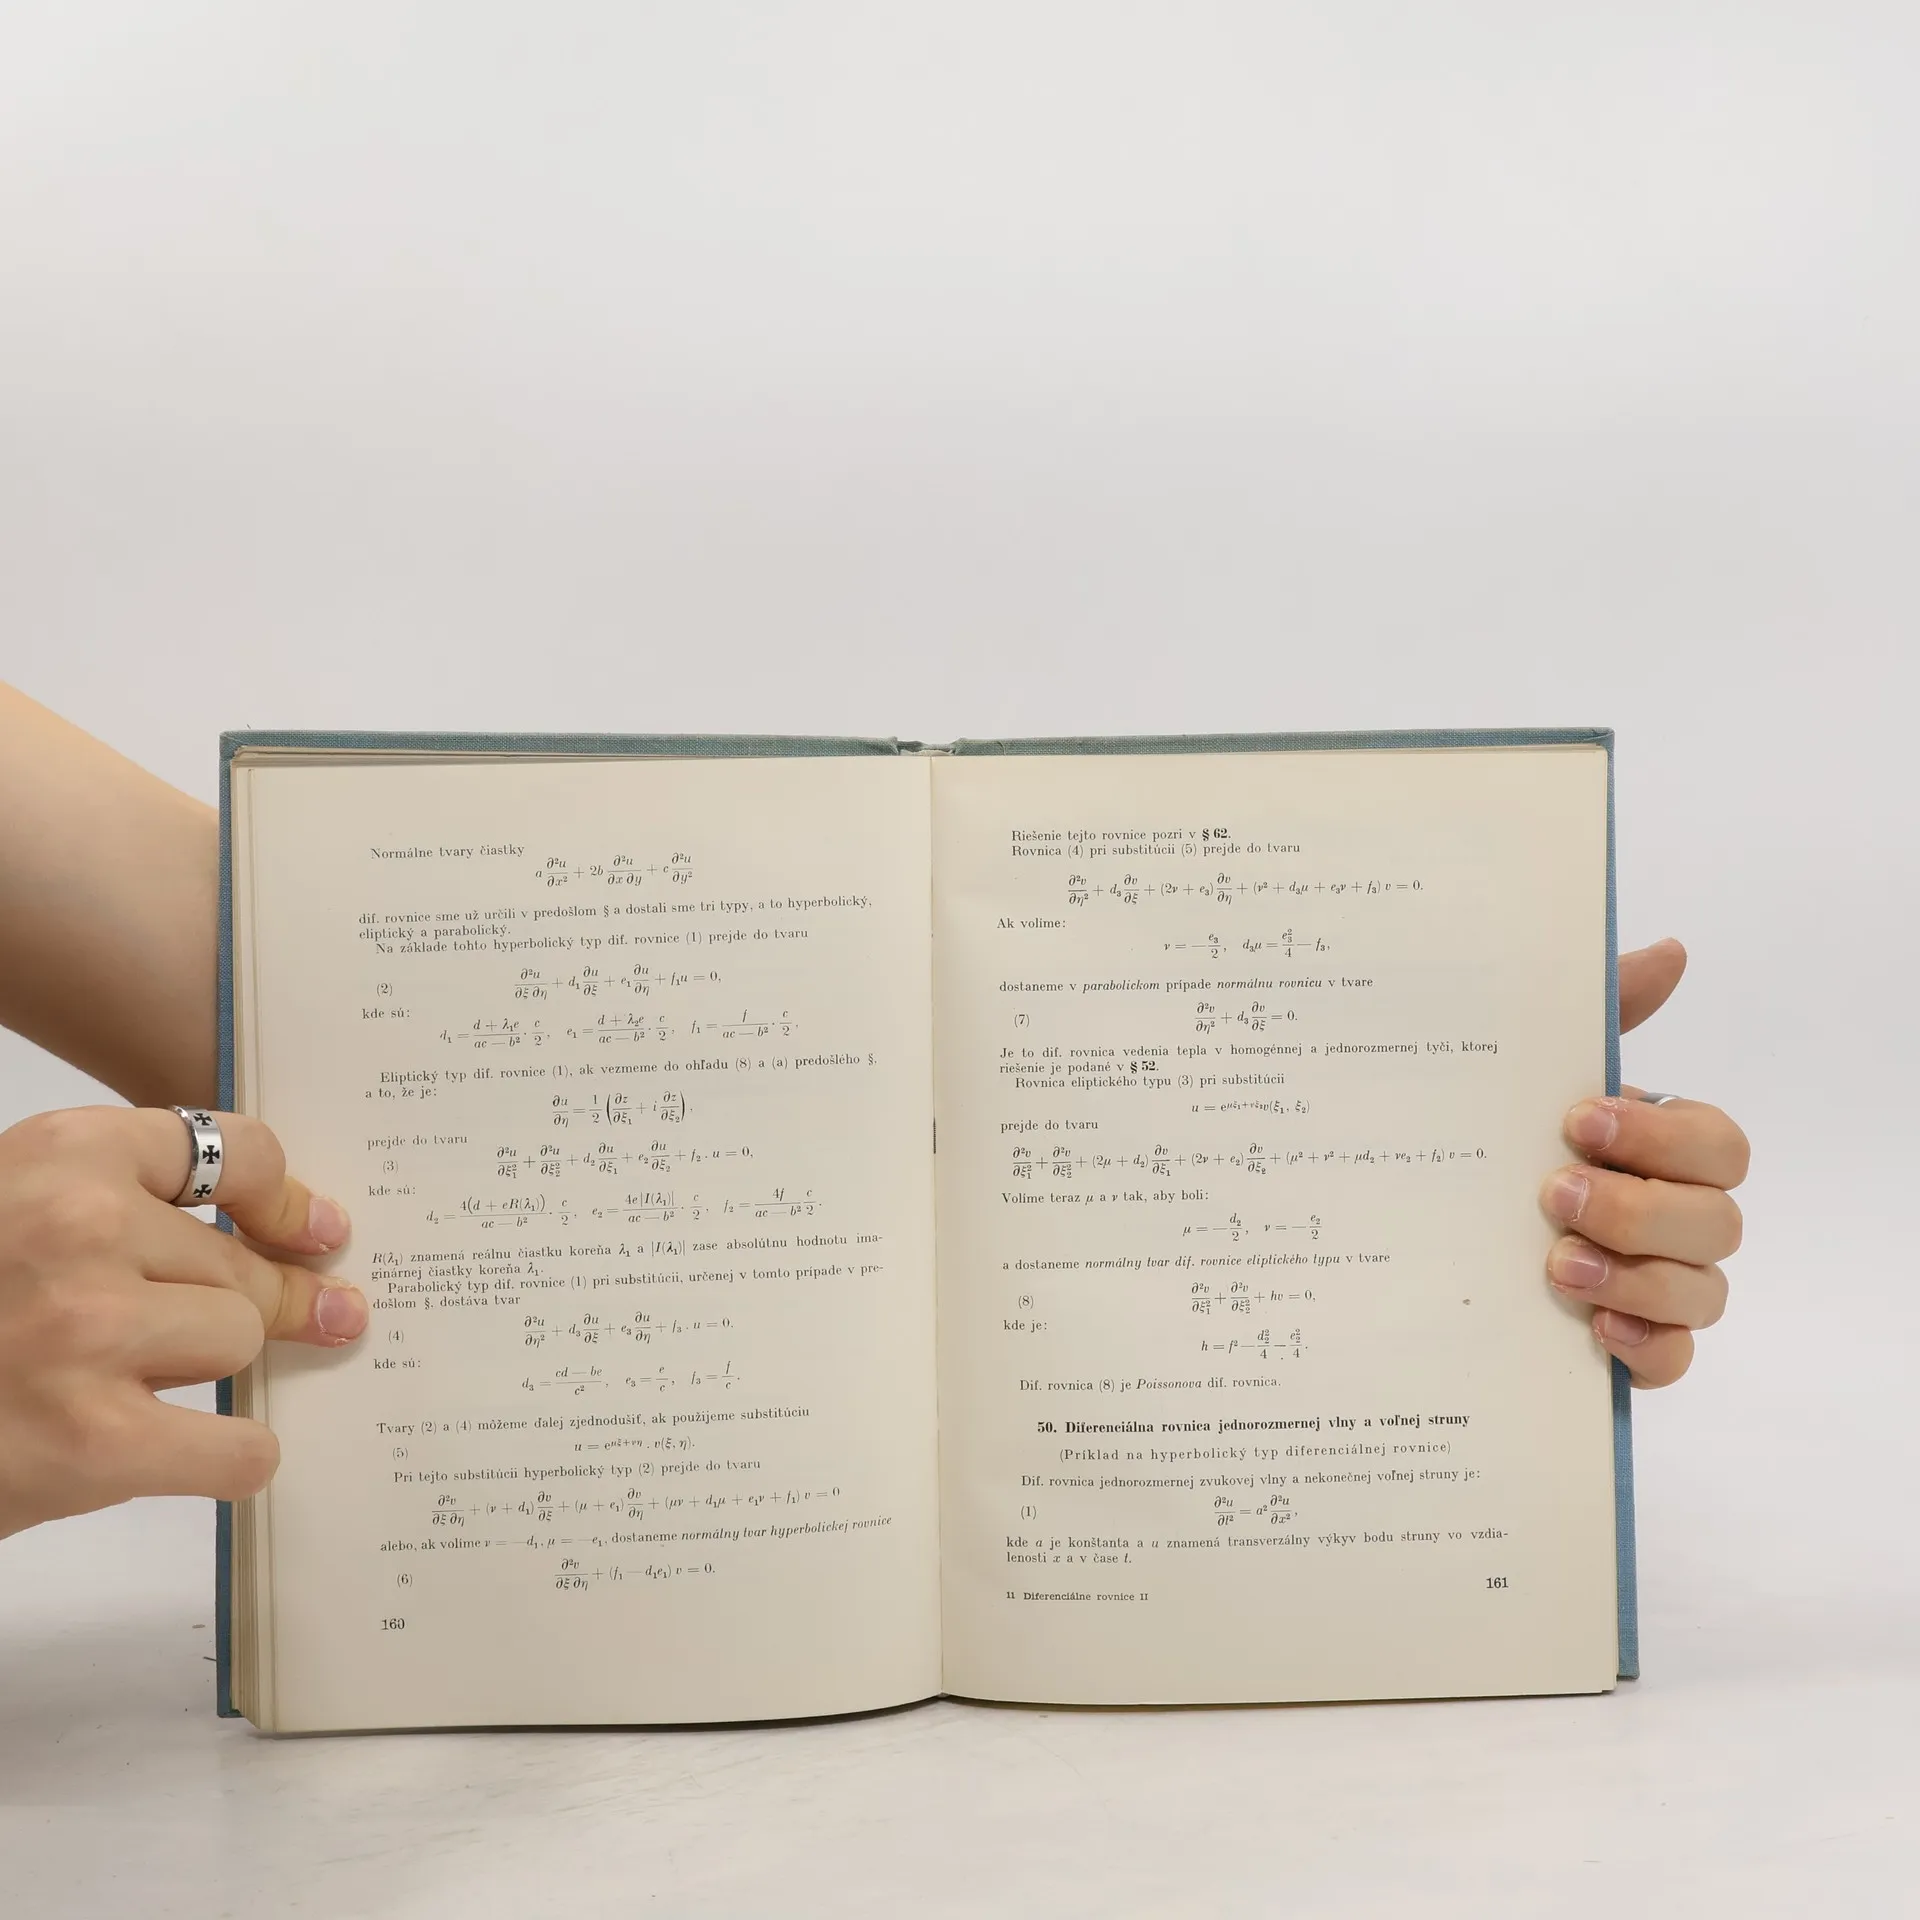 Normálne tvary čiastky
a ∂²u/∂x² + 2b ∂²u/∂x ∂y + c ∂²u/∂y²
dif. rovnice sme už určili v predošlom § a dostali sme tri typy, a to hyperbolický,
eliptický a parabolický.
Na základe tohto hyperbolický typ dif. rovnice (1) prejde do tvaru
(2) ∂²u/∂ξ ∂η + d₁ ∂u/∂ξ + e₁ ∂u/∂η + f₁u = 0,
kde sú:
d₁ = (d + λ₁e)/(ac — b²) · c/2, e₁ = (d + λ₂e)/(ac — b²) · c/2, f₁ = f/(ac — b²) · c/2,
Eliptický typ dif. rovnice (1), ak vezmeme do ohľadu (8) a (a) predošlého §,
a to, že je:
∂u/∂η = 1/2 (∂z/∂ξ₁ + i ∂z/∂ξ₂),
prejde do tvaru
(3) ∂²u/∂ξ₁² + ∂²u/∂ξ₂² + d₂ ∂u/∂ξ₁ + e₂ ∂u/∂ξ₂ + f₂ . u = 0,
kde sú:
d₂ = 4(d + eR(λ₁))/(ac — b²) · c/2, e₂ = 4e|I(λ₁)|/(ac — b²) · c/2, f₂ = 4f/(ac — b²) c/2.
R(λ₁) znamená reálnu čiastku koreňa λ₁ a |I(λ₁)| zase absolútnu hodnotu ima-
ginárnej čiastky koreňa λ₁.
Parabolický typ dif. rovnice (1) pri substitúcii, určenej v tomto prípade v pre-
došlom §, dostáva tvar
(4) ∂²u/∂η² + d₃ ∂u/∂ξ + e₃ ∂u/∂η + f₃ . u = 0.
kde sú:
d₃ = (cd — be)/c², e₃ = e/c, f₃ = f/c.
Tvary (2) a (4) môžeme ďalej zjednodušiť, ak použijeme substitúciu
(5) u = e^(μξ+νη) . v(ξ, η).
Pri tejto substitúcii hyperbolický typ (2) prejde do tvaru
∂²v/∂ξ ∂η + (ν + d₁) ∂v/∂ξ + (μ + e₁) ∂v/∂η + (μν + d₁μ + e₁ν + f₁) v = 0
alebo, ak volíme ν = —d₁, μ = —e₁, dostaneme normálny tvar hyperbolickej rovnice
(6) ∂²v/∂ξ ∂η + (f₁ — d₁e₁) v = 0.
160
Riešenie tejto rovnice pozri v § 62.
Rovnica (4) pri substitúcii (5) prejde do tvaru
∂²v/∂η² + d₃ ∂v/∂ξ + (2ν + e₃) ∂v/∂η + (ν² + d₃μ + e₃ν + f₃) v = 0.
Ak volíme:
ν = — e₃/2, d₃μ = e₃²/4 — f₃,
dostaneme v parabolickom prípade normálnu rovnicu v tvare
(7) ∂²v/∂η² + d₃ ∂v/∂ξ = 0.
Je to dif. rovnica vedenia tepla v homogénnej a jednorozmernej tyči, ktorej
riešenie je podané v § 52.
Rovnica eliptického typu (3) pri substitúcii
u = e^(μξ₁+νξ₂)v(ξ₁, ξ₂)
prejde do tvaru
∂²v/∂ξ₁² + ∂²v/∂ξ₂² + (2μ + d₂) ∂v/∂ξ₁ + (2ν + e₂) ∂v/∂ξ₂ + (μ² + ν² + μd₂ + νe₂ + f₂) v = 0.
Volíme teraz μ a ν tak, aby boli:
μ = — d₂/2, ν = — e₂/2
a dostaneme normálny tvar dif. rovnice eliptického typu v tvare
(8) ∂²v/∂ξ₁² + ∂²v/∂ξ₂² + hv = 0,
kde je:
h = f² — d₂²/4 — e₂²/4.
Dif. rovnica (8) je Poissonova dif. rovnica.
50. Diferenciálna rovnica jednorozmernej vlny a voľnej struny
(Príklad na hyperbolický typ diferenciálnej rovnice)
Dif. rovnica jednorozmernej zvukovej vlny a nekonečnej voľnej struny je:
(1) ∂²u/∂t² = a² ∂²u/∂x²,
kde a je konštanta a u znamená transverzálny výkyv bodu struny vo vzdia-
lenosti x a v čase t.
11 Diferenciálne rovnice II
161